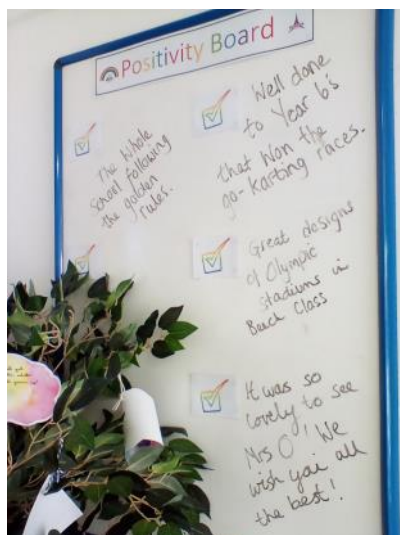 Positivity Board
The Whole
School following
the golden
rules.
Well done
to Year 6's
that won the
go-karting races.
Great designs
of Olympic
stadiums in
Beech Class
It was so
lovely to see
Mrs O! We
wish you all
the best!